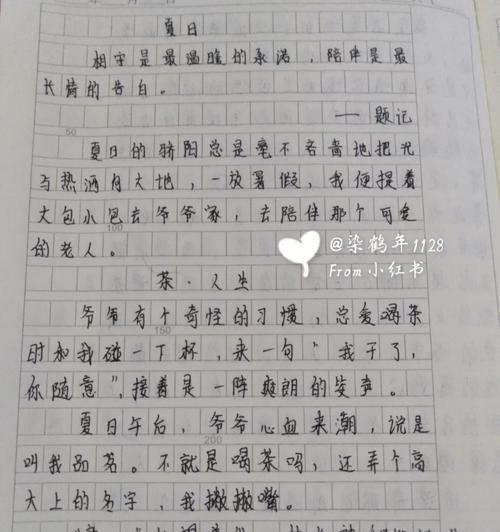 夏日
相守是最温暖的承诺，陪伴是最
长情的告白。
——题记
50
夏日的骄阳总是毫不吝啬地把光
与热洒向大地，一放暑假，我便提着
大包小包去爷爷家，去陪伴那个可爱
100
的老人。
@染鹤年1128
From 小红书
茶·人生
爷爷有个奇怪的习惯，总爱喝茶
150
时和我碰一下杯，来一句“我干了，
你随意”，接着是一阵爽朗的笑声。
夏日午后，爷爷心血来潮，说是
200
叫我品茗。不就是喝茶吗，还弄个高
大上的名字，我撇撇嘴。